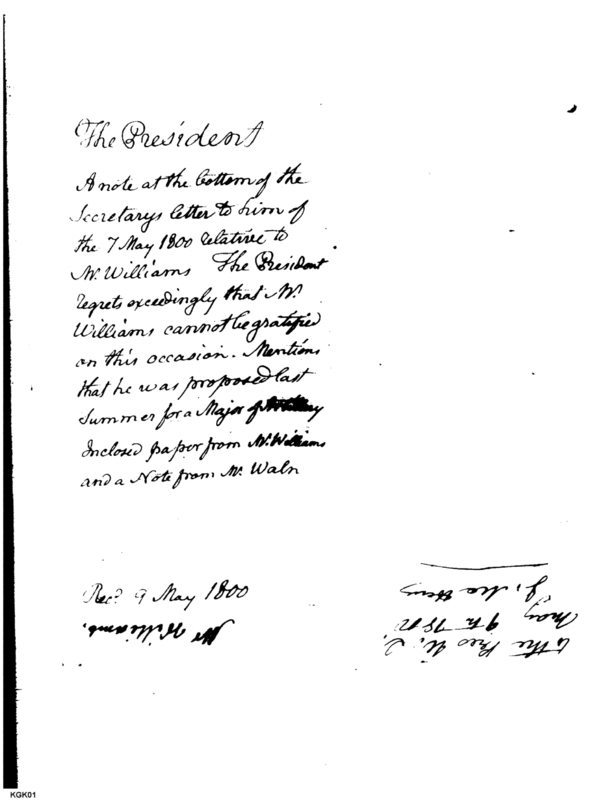 The President
A note at the bottom of the
Secretarys letter to him of
the 7 May 1800 relative to
Mr. Williams The President
regrets exceedingly that Mr.
Williams cannot be gratified
on this occasion. Mentions
that he was proposed last
Summer for a Major of Artillery
Inclosed paper from Mr. Williams
and a Note from Mr. Waln
Recd. 9 May 1800
Mr Williams.
to the Pres U. S.
May 9th
KGK01